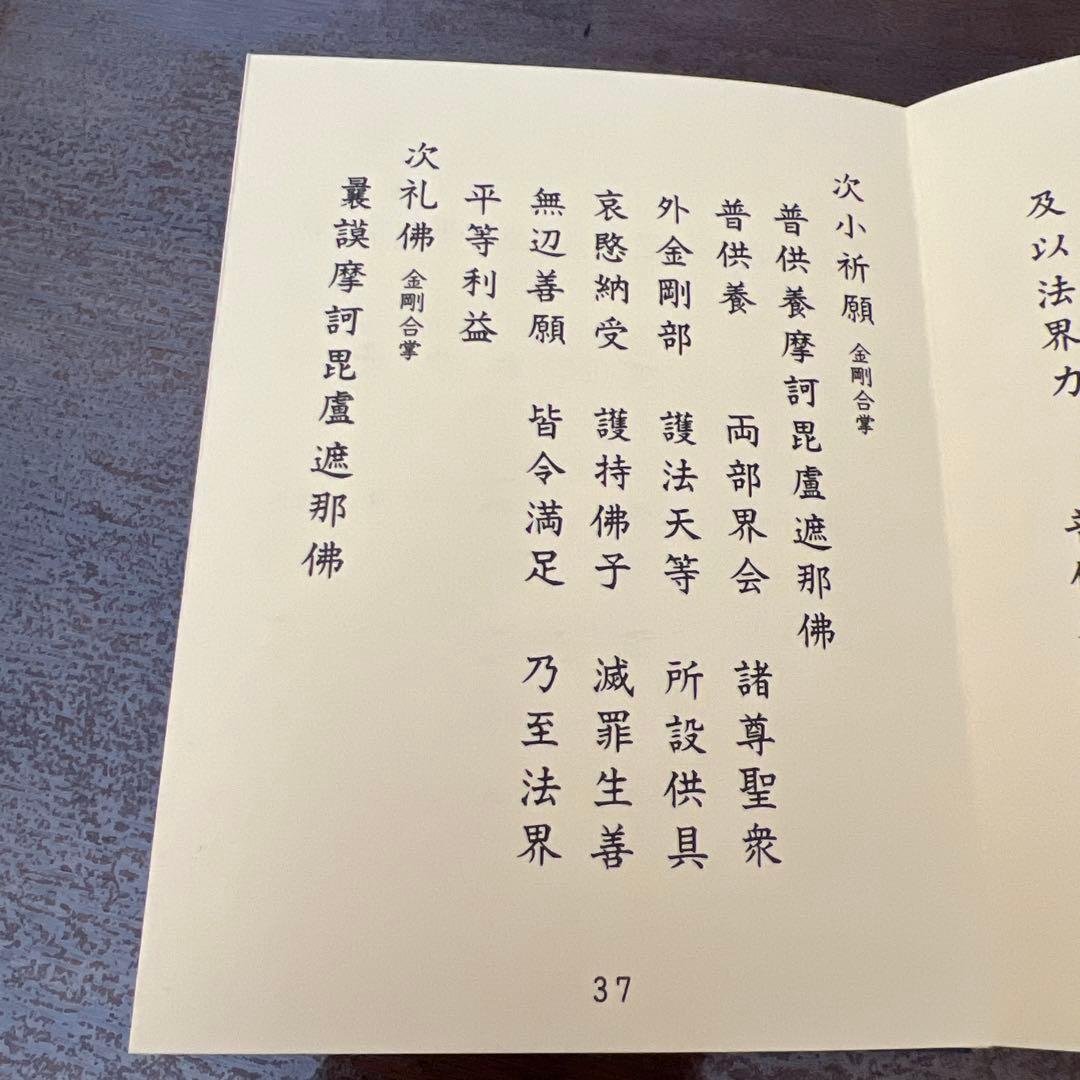 及以法界力
次小祈願 金剛合掌
普供養摩訶毘盧遮那佛
普供養 両部界会 諸尊聖衆
外金剛部 護法天等 所設供具
哀愍納受 護持佛子 滅罪生善
無辺善願 皆令満足 乃至法界
平等利益
次礼佛 金剛合掌
曩謨摩訶毘盧遮那佛
37